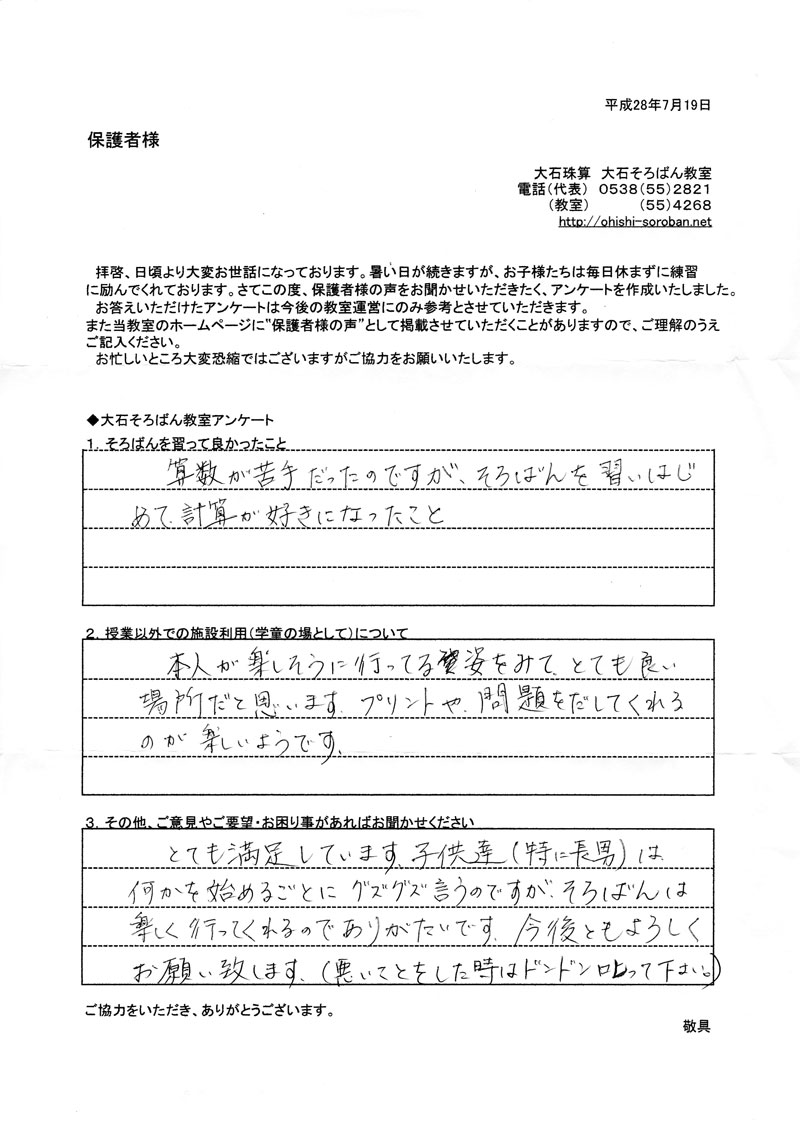 平成28年7月19日
保護者様
大石珠算　大石そろばん教室
電話(代表)　0538(55)2821
(教室)　(55)4268
http://ohishi-soroban.net
拝啓、日頃より大変お世話になっております。暑い日が続きますが、お子様たちは毎日休まずに練習
に励んでくれております。さてこの度、保護者様の声をお聞かせいただきたく、アンケートを作成いたしました。
お答えいただけたアンケートは今後の教室運営にのみ参考とさせていただきます。
また当教室のホームページに"保護者様の声"として掲載させていただくことがありますので、ご理解のうえ
ご記入ください。
お忙しいところ大変恐縮ではございますがご協力をお願いいたします。
◆大石そろばん教室アンケート
1. そろばんを習って良かったこと
算数が苦手だったのですが、そろばんを習いはじ
めて、計算が好きになったこと
2. 授業以外での施設利用(学童の場として)について
本人が楽しそうに行ってる姿をみて、とても良い
場所だと思います。プリントや、問題をだしてくれる
のが楽しいようです。
3. その他、ご意見やご要望・お困り事があればお聞かせください
とても満足しています。子供達(特に長男)は
何かを始めるごとにグズグズ言うのですが、そろばんは
楽しく行ってくれるのでありがたいです。今後ともよろしく
お願い致します。(悪いことをした時はドンドン叱って下さい。)
ご協力をいただき、ありがとうございます。
敬具